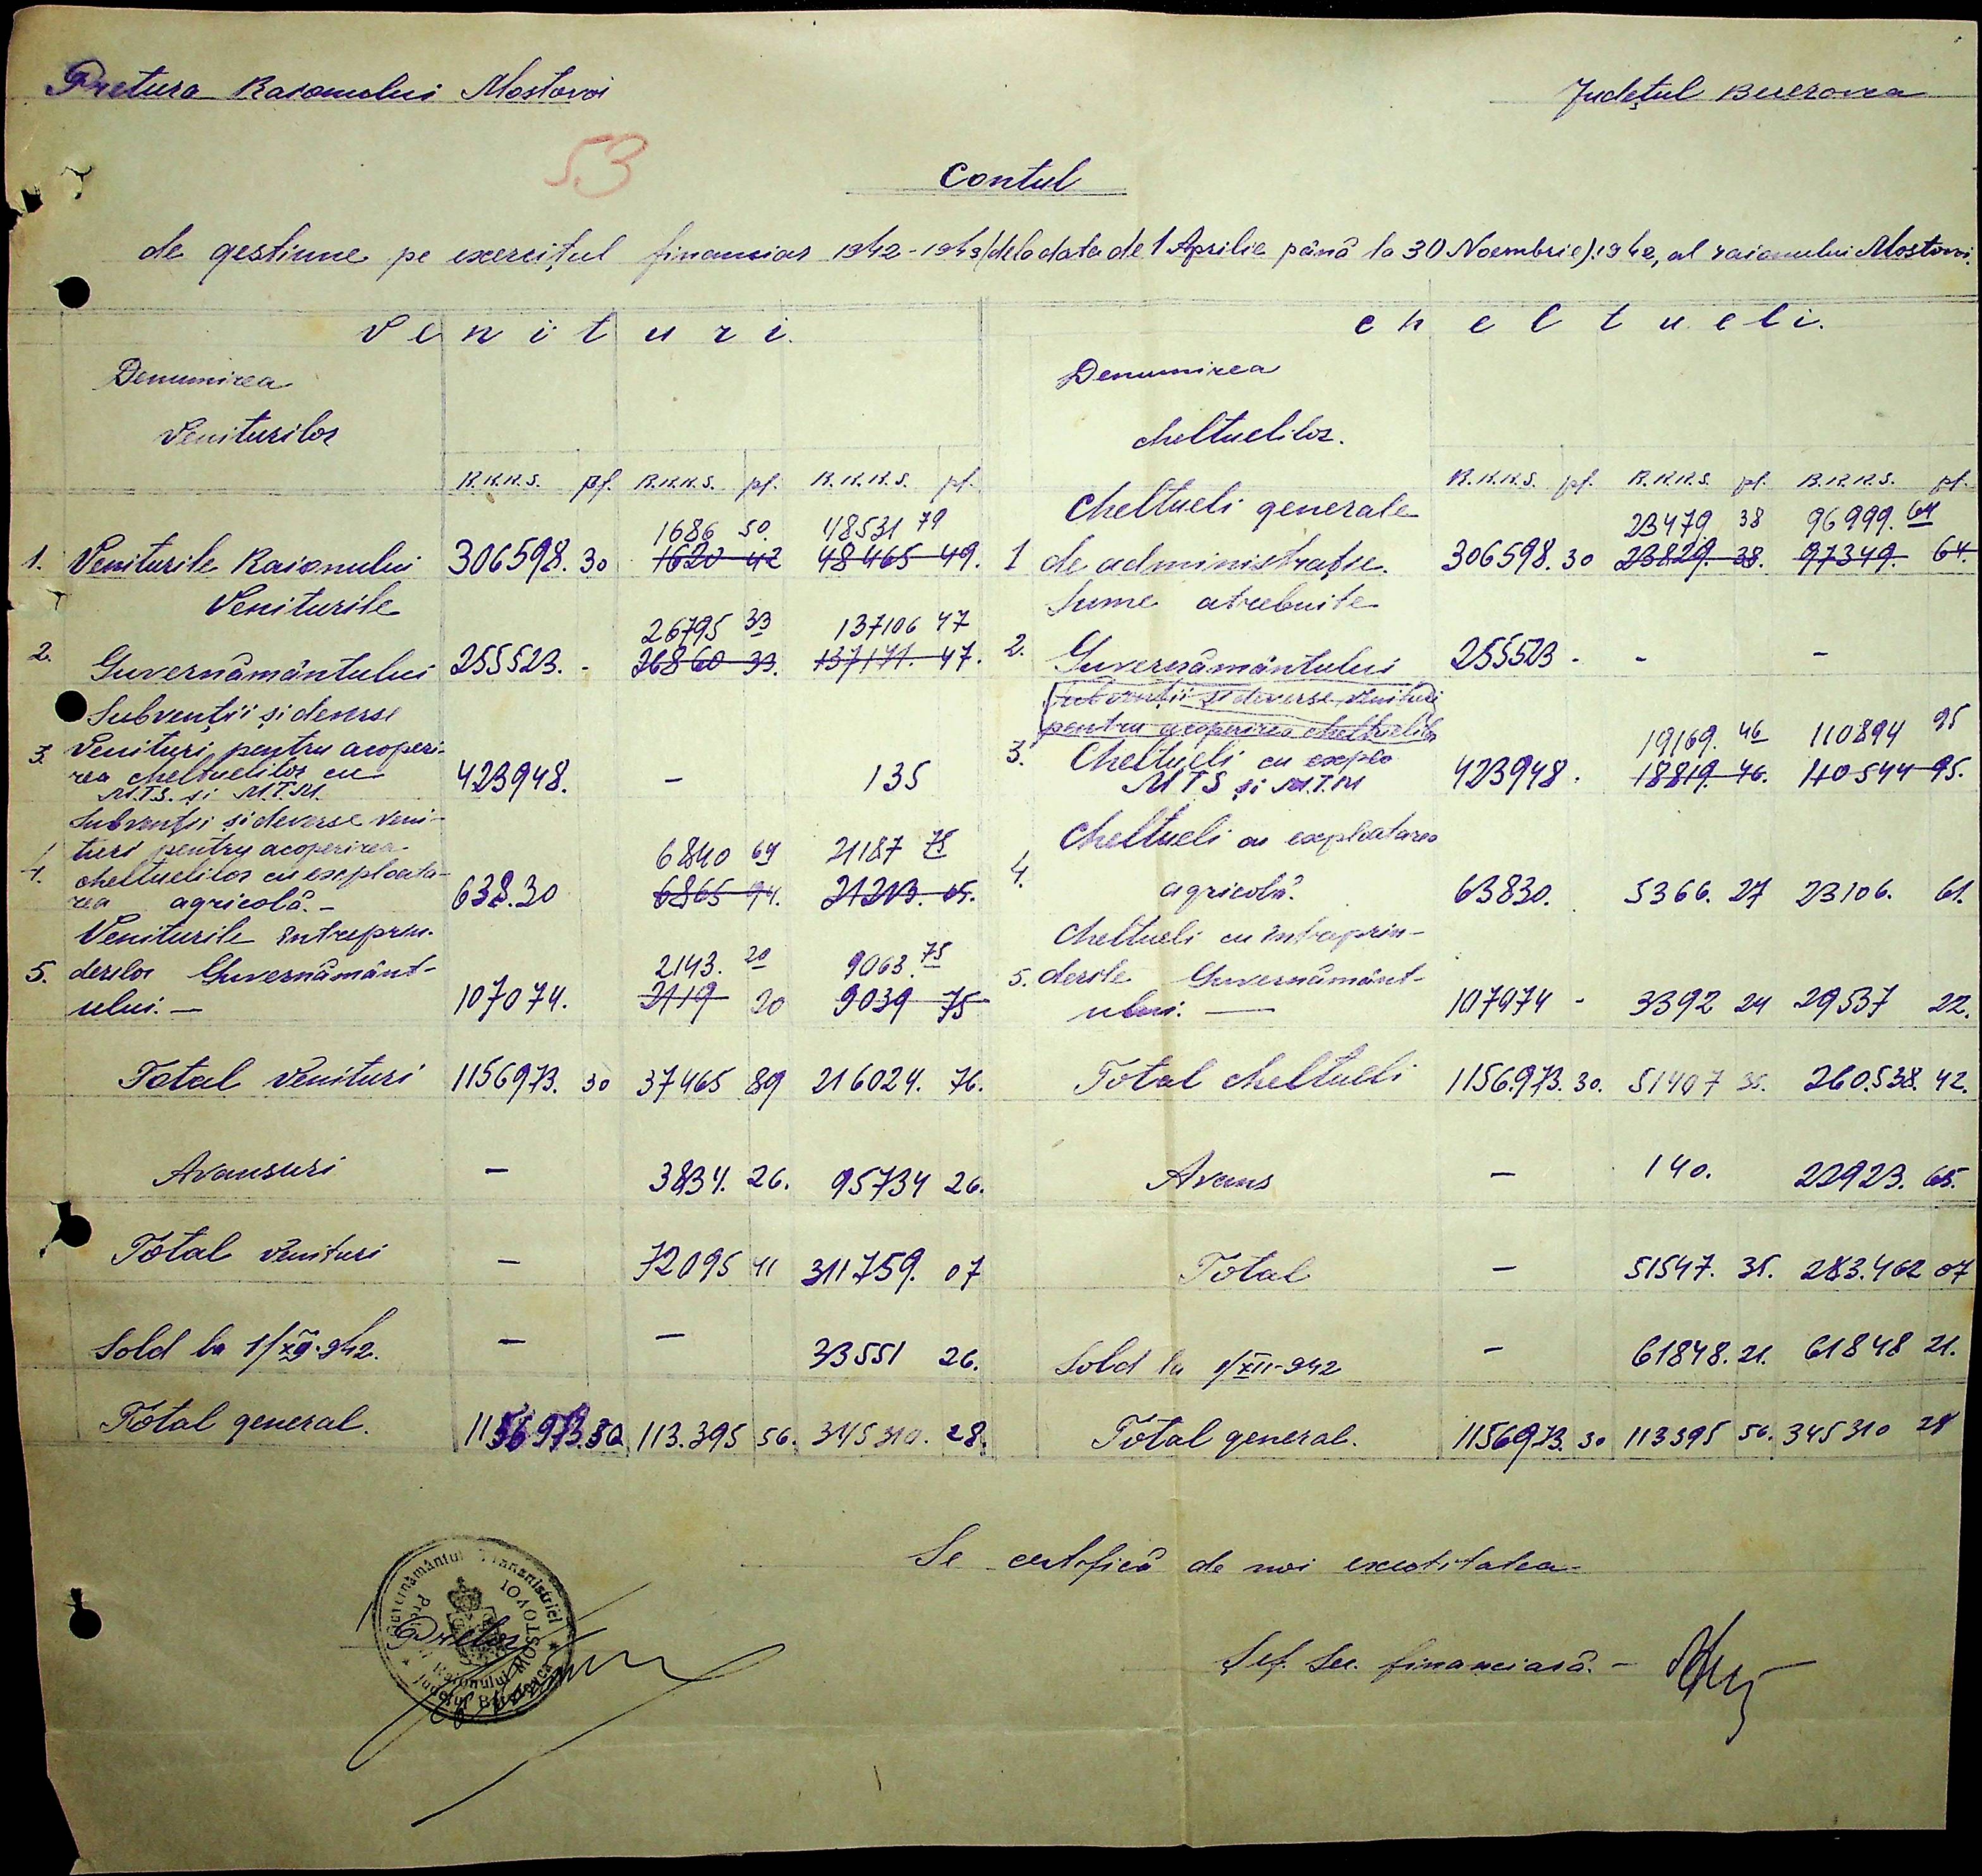 Pretura Raionului Mostovoi Județul Berezovca
53
Contul
de gestiune pe exercițul financiar 1942-1943 (dela data de 1 Aprilie până la 30 Noembrie) 1942, al raionului Mostovoi.
Venituri. cheltueli.
Denumirea Denumirea
Veniturilor cheltuelilor.
R.K.K.S. pf. R.K.K.S. pf. R.K.K.S. pf. R.K.K.S. pf. R.K.K.S. pf. R.K.K.S. pf.
1686 50. 48531 79 Cheltueli generale 23479 38 96999. 64
1. Veniturile Raionului 306598. 30 1620 42 48465 49. 1 de administrație. 306598. 30 23829. 38. 97349. 64.
Veniturile 26795 33 137106 47 Sume atrebuite
2. Guvernământului 255523. - 26860 33. 137171. 47. 2. Guvernământului 255523 - - -
Subvenții și deverse Subvenții și deverse venituri
3. Venituri pentru acoperi- pentru acoperirea cheltuelilor 19169. 46 110894 95
rea cheltuelilor cu 423948. - 135 3. Cheltueli cu explo 423948. 18819. 46. 110544 95.
M.T.S. și M.T.M. MTS și M.T.M
Subvenții și deverse veni-
turi pentru acoperirea 6840 64 21187 75 Cheltueli cu exploatarea
4. cheltuelilor cu exploata- 638.30 6865 94. 21213. 05. 4. agricolă. 63830. 5366. 27 23106. 61.
rea agricolă. -
Veniturile întreprin- 2143. 20 9063. 75 Cheltueli cu întreprin-
5. derilor Guvernământ- 107074. 2119 20 9039 75 5. derile Guvernământ- 107074 - 3392 24 29537 22.
ului. - ului. -
Total venituri 1156973. 30 37465 89 216024. 76. Total cheltueli 1156.973. 30. 51407 35. 260.538. 42.
Avansuri - 3834. 26. 95734 26. Avans - 140. 22923. 65.
Total venituri - 72095 41 311759. 07 Total - 51547. 35. 283.462 07
Sold la - - 33551 26. Sold la 1/XII-942 - 61848. 21. 61848 21.
Total general. 1156973.30 113.395 56. 345310. 28. Total general. 1156973. 30 113395 56. 345310 28
Se certifică de noi exactitatea
Guvernământul Transnistriei
Pretura Raionului MOSTOVOI
Județul Berezovca
Pretor
Șef. Sec. financiară. -